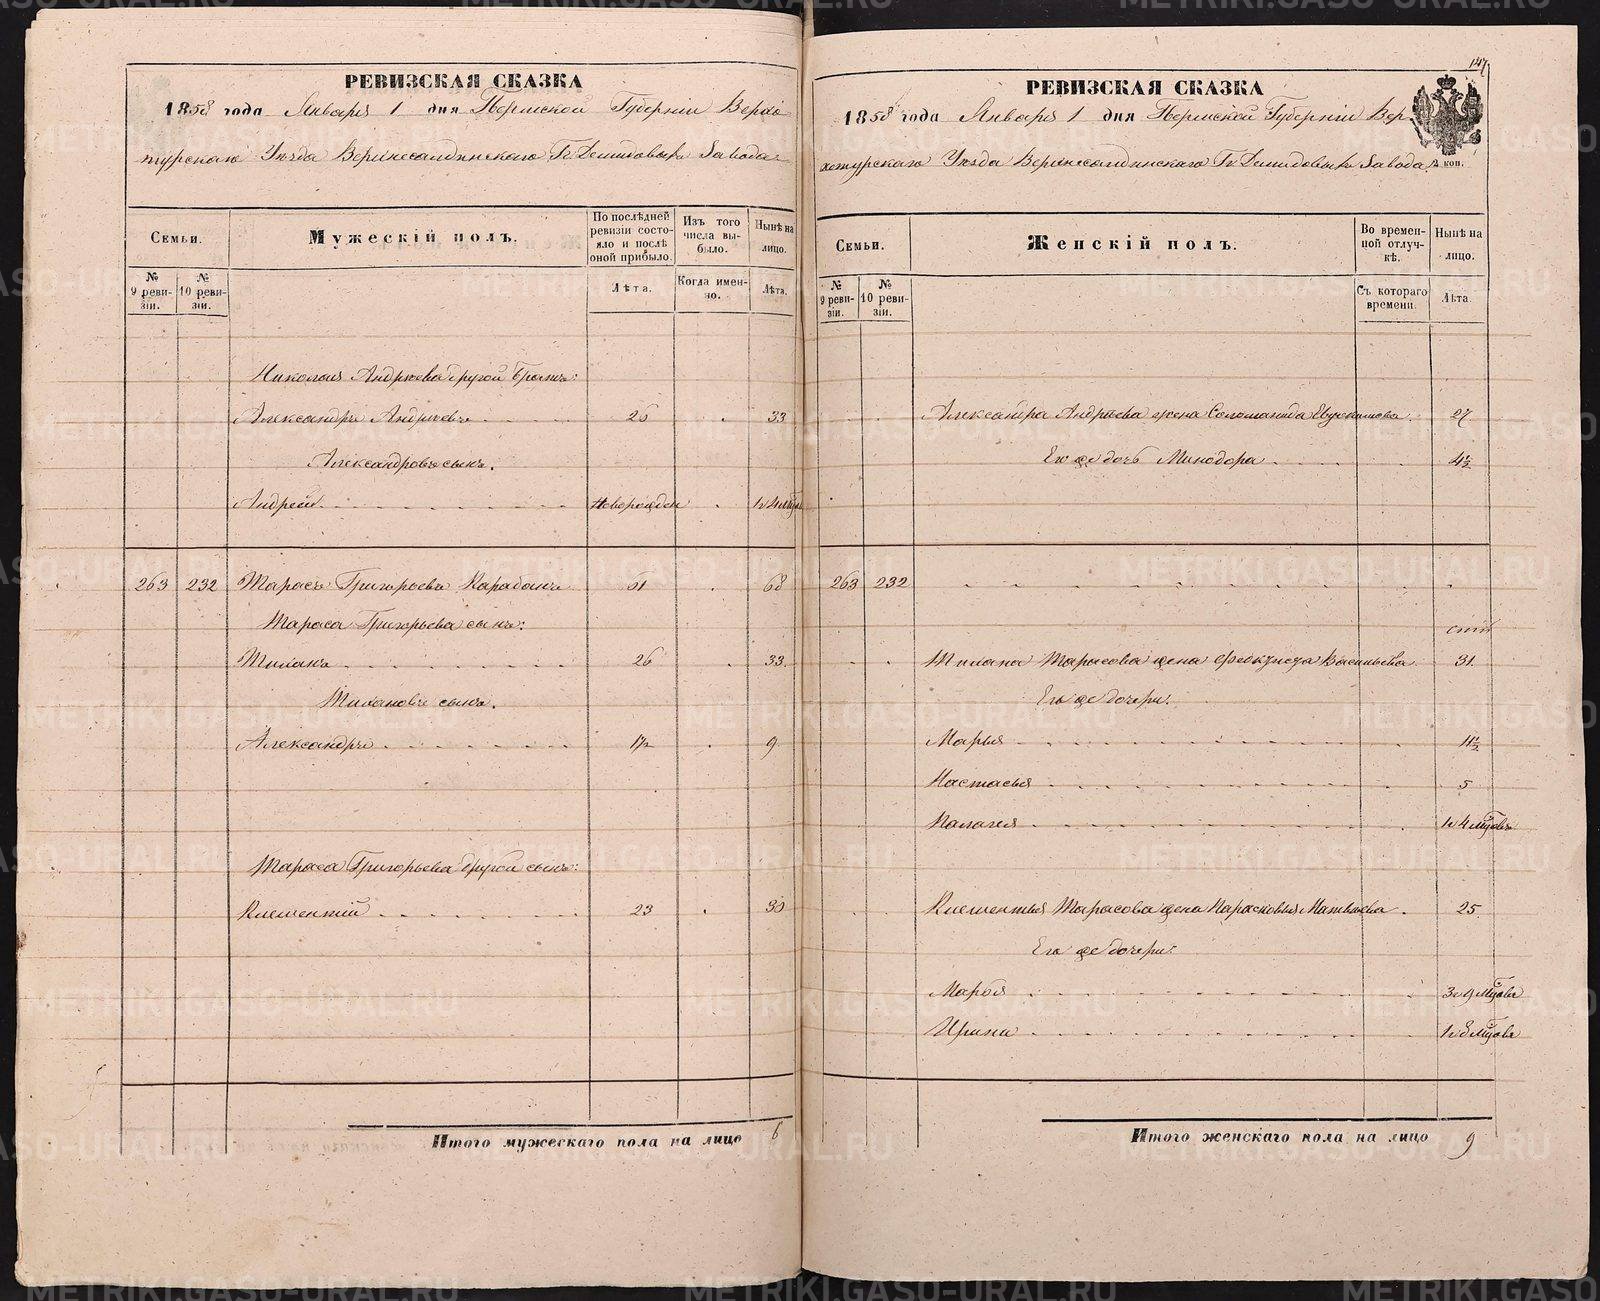 РЕВИЗСКАЯ СКАЗКА
1858 года Января 1 дня Пермской Губерніи Верхо-
турскаго Уѣзда Верхнесалдинскаго Гг. Демидовыхъ Завода
Семьи.
Мужескій полъ.
По послѣдней ревизіи состояло и послѣ оной прибыло.
Изъ того числа выбыло.
Нынѣ на лицо.
№ 9 ревизіи.
№ 10 ревизіи.
Лѣта.
Когда именно.
Лѣта.
Николая Андреева другой братъ:
Александръ Андреевъ 26 33
Александровъ сынъ.
Андрей новорожден 1 и 4 мѣс
263 232 Тарасъ Григорьевъ 61 68
Тараса Григорьева сынъ:
26 33.
сынъ.
Александръ 1½ 9
Тараса Григорьева другой сынъ:
Клементий 23 30
Итого мужескаго пола на лицо 6
147
РЕВИЗСКАЯ СКАЗКА
1858 года Января 1 дня Пермской Губерніи Вер-
хотурскаго Уѣзда Верхнесалдинскаго Гг. Демидовыхъ Завода.
коп.
Семьи.
Женскій полъ.
Во временной отлучкѣ.
Нынѣ на лицо.
№ 9 ревизіи.
№ 10 ревизіи.
Съ котораго времени.
Лѣта.
Александра Андреева жена Соломанида 27
Его же дочь Минодора 4½
263 232
Тарасова жена Васильева 31
Его же дочери:
Марья 11½
Настасья 5
Палагея 1 и 4 мѣсцовъ
Клементья Тарасова жена Парасковья Матвѣева 25
Его же дочери:
Марья 3 и 9 мѣсцовъ
Ирина 1 и 8 мѣсцовъ
Итого женскаго пола на лицо 9
METRIKI.GASO-URAL.RU